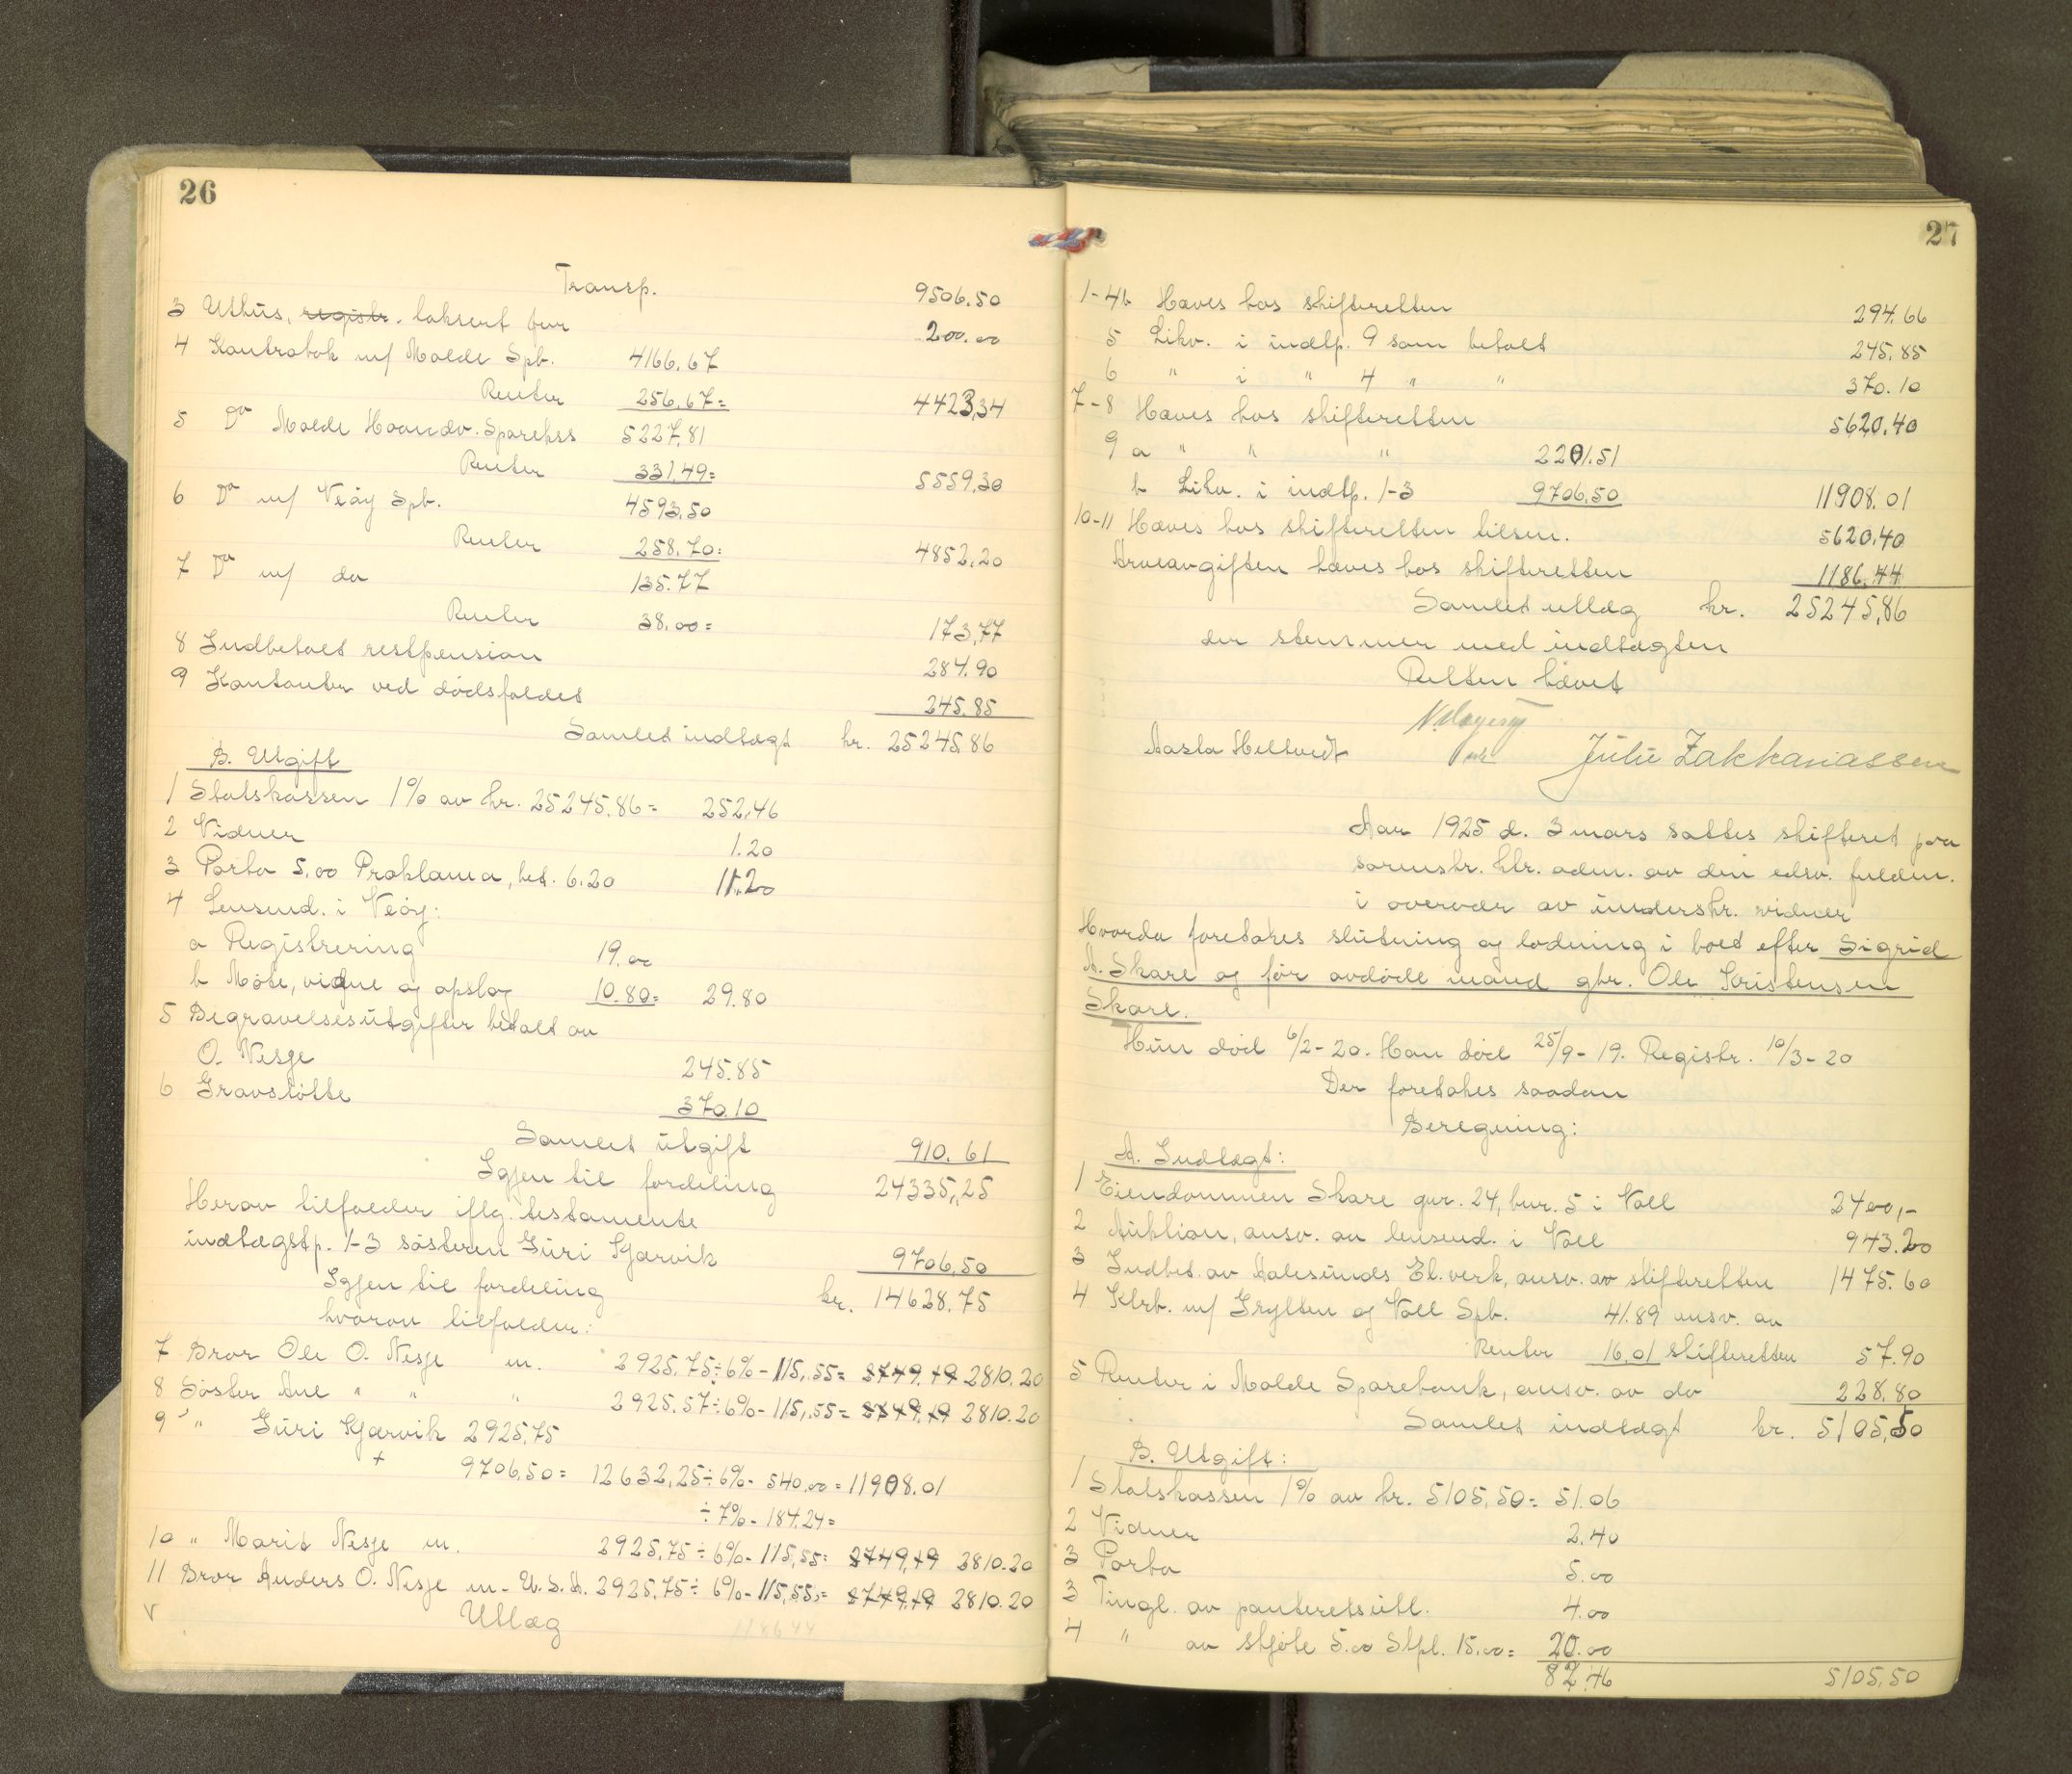 26
Transp. 9506.50
3 Uthus, registr. taksert for 200.00
4 Kontrabok m/ Molde Spb. 4166.67
Renter 256.67= 4423,34
5 Do Molde Haandv. Sparekss 5227,81
Renter 331,49= 5559,30
6 Do m/ Veøy Spb. 4593,50
Renter 258.70= 4852,20
7 Do m/ do 135.77
Renter 38.00= 173,77
8 Indbetalt restpension 284.90
9 Kontanter ved dødsfaldet 245.85
Samlet indtægt kr. 25245.86
B. Utgift
1 Statskassen 1% av kr. 25245.86= 252,46
2 Vidner 1.20
3 Porto 5.00 Proklama, bet. 6.20 11.20
4 Lensmd. i Veøy:
a Registrering 19.00
b Møte, vidne og opslag 10.80= 29.80
5 Begravelsesutgifter betalt av
O. Nesje 245.85
6 Gravstøtte 370.10
Samlet utgift 910.61
Igjen til fordeling 24335,25
Herav tilfalder iflg. testamente
indtægtsp. 1-3 søsteren Guri Gjærvik 9706,50
Igjen til fordeling kr. 14628.75
hvorav tilfalder:
7 Bror Ole O. Nesje m. 2925,75÷6% - 115,55= 2749.19 2810.20
8 Søster Ane " " " 2925.57÷6% - 115,55= 2749.19 2810.20
9 " Guri Gjærvik 2925,75
+ 9706,50= 12632,25÷6% - 540.00 = 11908.01
÷7% - 184.24=
10 " Marit Nesje m. 2925,75÷6% - 115,55= 2749,19 2810.20
11 Bror Anders O. Nesje m - U.S.A. 2925,75÷ 6% - 115,55,= 2749,19 2810.20
Utlæg 118644
27
1-4b Hæves hos skifteretten 294.66
5 Likv. i indtp. 9 som betalt 245.85
6 " i " 4 " " 370.10
7-8 Hæves hos skifteretten 5620.40
9 a " " " 2201.51
b Likv. i indtp. 1-3 9706,50 11908.01
10-11 Hæves hos skifteretten tilsm. 5620.40
Arveavgiften hæves hos skifteretten 1186.44
Samlet utlæg kr. 25245,86
der stemmer med indtægten
Retten hævet
Aasta Heltvedt Julie Zakkariassen
Aar 1925 d. 3 mars sattes skifteret paa
sorenskr. ktr. adm. av den edsv. fuldm.
i overvær av underskr. vidner
Hvorda foretokes slutning og lodning i boet efter Sigrid
A. Skare og før avdøde mand gbr. Ole Kristensen
Skare.
Hun død 6/2-20. Han død 25/9-19. Registr. 10/3-20
Der foretokes saadan
Beregning:
A. Indtægt:
1 Eiendommen Skare gnr. 24, bnr. 5 i Voll 2400,-
2 Auktion, ansv. av lensmd. i Voll 943.20
3 Indbet. av Aalesunds El.verk, ansv. av skifteretten 1475.60
4 Ktrb. m/ Grytten og Voll Spb. 41.89 ansv. av
Renter 16.01 skifteretten 57.90
5 Renter i Molde Sparebank, ansv. av do 228.80
Samlet indtægt kr. 5105,50
B. Utgift:
1 Statskassen 1% av kr. 5105,50= 51.06
2 Vidner 2.40
3 Porto 5.00
3 Tingl. av panteretsutl. 4.00
4 " av skjøte 5.00 Stpl. 15.00= 20.00
82.46 5105,50